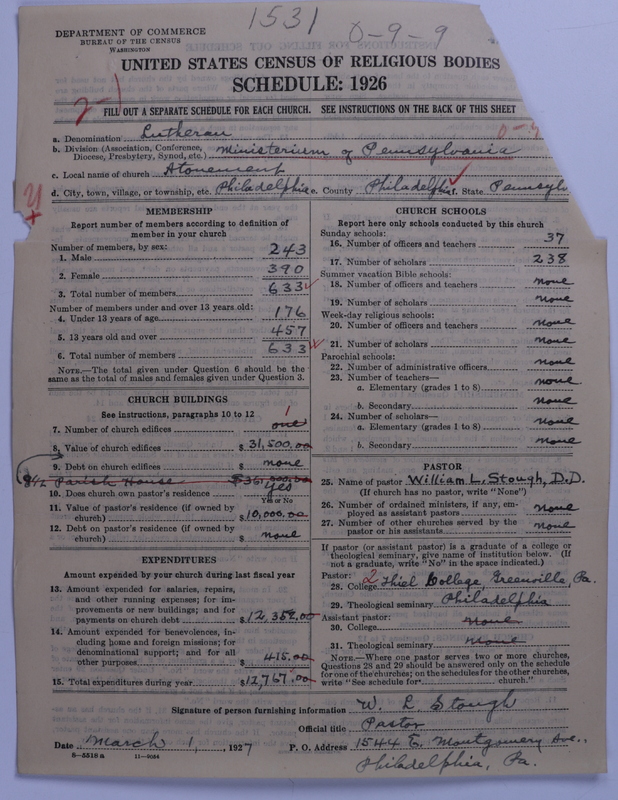 1531
0-9-9
DEPARTMENT OF COMMERCE
BUREAU OF THE CENSUS
WASHINGTON
UNITED STATES CENSUS OF RELIGIOUS BODIES
SCHEDULE: 1926
2-1
FILL OUT A SEPARATE SCHEDULE FOR EACH CHURCH. SEE INSTRUCTIONS ON THE BACK OF THIS SHEET
a. Denomination Lutheran
b. Division (Association, Conference, Diocese, Presbytery, Synod, etc.) Ministerium of Pennsylvania
c. Local name of church Atonement
d. City, town, village, or township, etc. Philadelphia e. County Philadelphia f. State Pennsylv
MEMBERSHIP
Report number of members according to definition of
member in your church
Number of members, by sex:
1. Male 243
2. Female 390
3. Total number of members 633
Number of members under and over 13 years old:
4. Under 13 years of age 176
5. 13 years old and over 457
6. Total number of members 633
NOTE.—The total given under Question 6 should be
same as the total of males and females given under Question 3.
CHURCH BUILDINGS
See instructions, paragraphs 10 to 12
1
7. Number of church edifices one
8. Value of church edifices $ 31,500.00
9. Debt on church edifices $ none
Parish House
10. Does church own pastor's residence Yes
Yes or No
11. Value of pastor's residence (if owned by
church) $10,000.00
12. Debt on pastor's residence (if owned by
church) $ none
EXPENDITURES
Amount expended by your church during last fiscal year
13. Amount expended for salaries, repairs,
and other running expenses; for im-
provements or new buildings; and for
payments on church debt $12,352.00
14. Amount expended for benevolences, in-
cluding home and foreign missions; for
denominational support; and for all
other purposes $ 415.00
15. Total expenditures during year $12,767.00
CHURCH SCHOOLS
Report here only schools conducted by this church
Sunday schools:
16. Number of officers and teachers 37
17. Number of scholars 238
Summer vacation Bible schools:
18. Number of officers and teachers none
19. Number of scholars none
Week-day religious schools:
20. Number of officers and teachers none
21. Number of scholars none
Parochial schools:
22. Number of administrative officers none
23. Number of teachers—
a. Elementary (grades 1 to 8) none
b. Secondary none
24. Number of scholars—
a. Elementary (grades 1 to 8) none
b. Secondary none
PASTOR
25. Name of pastor William L. Stough, D.D.
(If church has no pastor, write "None")
26. Number of ordained ministers, if any, em-
ployed as assistant pastors none
27. Number of other churches served by the
pastor or his assistants none
If pastor (or assistant pastor) is a graduate of a college or
theological seminary, give name of institution below. (If
not a graduate, write "No" in the space indicated.)
Pastor:
28. College 2 Thiel College Greenville, Pa.
29. Theological seminary Philadelphia
Assistant pastor:
30. College none
31. Theological seminary none
NOTE.—Where one pastor serves two or more churches,
Questions 28 and 29 should be answered only on the schedule
for one of the churches; on the schedules for the other churches,
write "See schedule for church."
Signature of person furnishing information W. L. Stough
Official title Pastor
Date March 1, 1927 P. O. Address 1544 E. Montgomery Ave.,
Philadelphia, Pa.
8-5518 a 11-9064